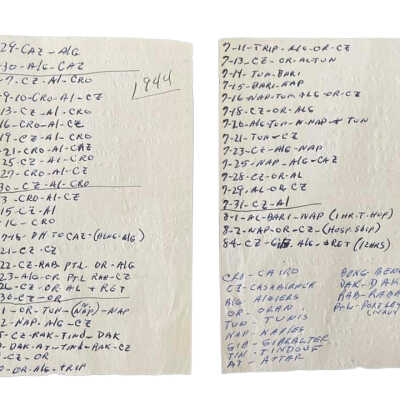 29-CAZ-AlG
30-AlG-CAZ
7-CZ-Al-CRO
9-10-CRO-Al-CZ
13-CZ-Al-CRO
16-CRO-Al-CZ
19-CZ-Al-CRO
21-CRO-Al-CAZ
25-CZ-Al-CRO
27-CRO-Al-CZ
30-CZ-Al-CRO
3-CRO-Al-CZ
15-CZ-Al
16-CRO
TO CAZ-
21-CZ-CZ
22-CZ-RAB PTL OR-AlG
23-AlG-OR PTL RAB-CZ
CZ-OR AL + RET
30-CZ-OR
1-OR-TUN-(NAP)-NAP
2-NAP-AlG-CZ
5-CZ-RAK-TIND-DAK
DAK-AT-TIND-RAK-CZ
CZ-OR
OR-AlG-TRIP
1944
7-11-TRIP-AlG-OR-CZ
7-13-CZ-OR-Al-TUN
7-14-TUN-BARI
7-15-BARI-NAP
7-16-NAP-TUN-AlG-OR-CZ
7-18-CZ-OR-AlG
7-20-AlG-TUN-N-NAP + TUN
7-21-TUN-CZ
7-23-CZ-AlG-NAP
7-25-NAP-AlG-CAZ
7-28-CZ-OR-AL
7-29-AL OR CZ
7-31-CZ-Al
8-1-AL-BARI-NAP (1HR.T.HOP)
8-2-NAP-OR-CZ-(HOSP.SHIP)
8-4-CZ-GIB AlG + RET (12HRS)
CRO-CAIRO
CZ-CASABLANCA
AlG ALGIERS
OR-ORAN
TUN-TUNIS
NAP-NAPLES
GIB-GIBRALTER
TIN-TINDOUF
AT-ATTAR
BENG-BENG
DAK-DAK
RAB-RABA
(NAVY